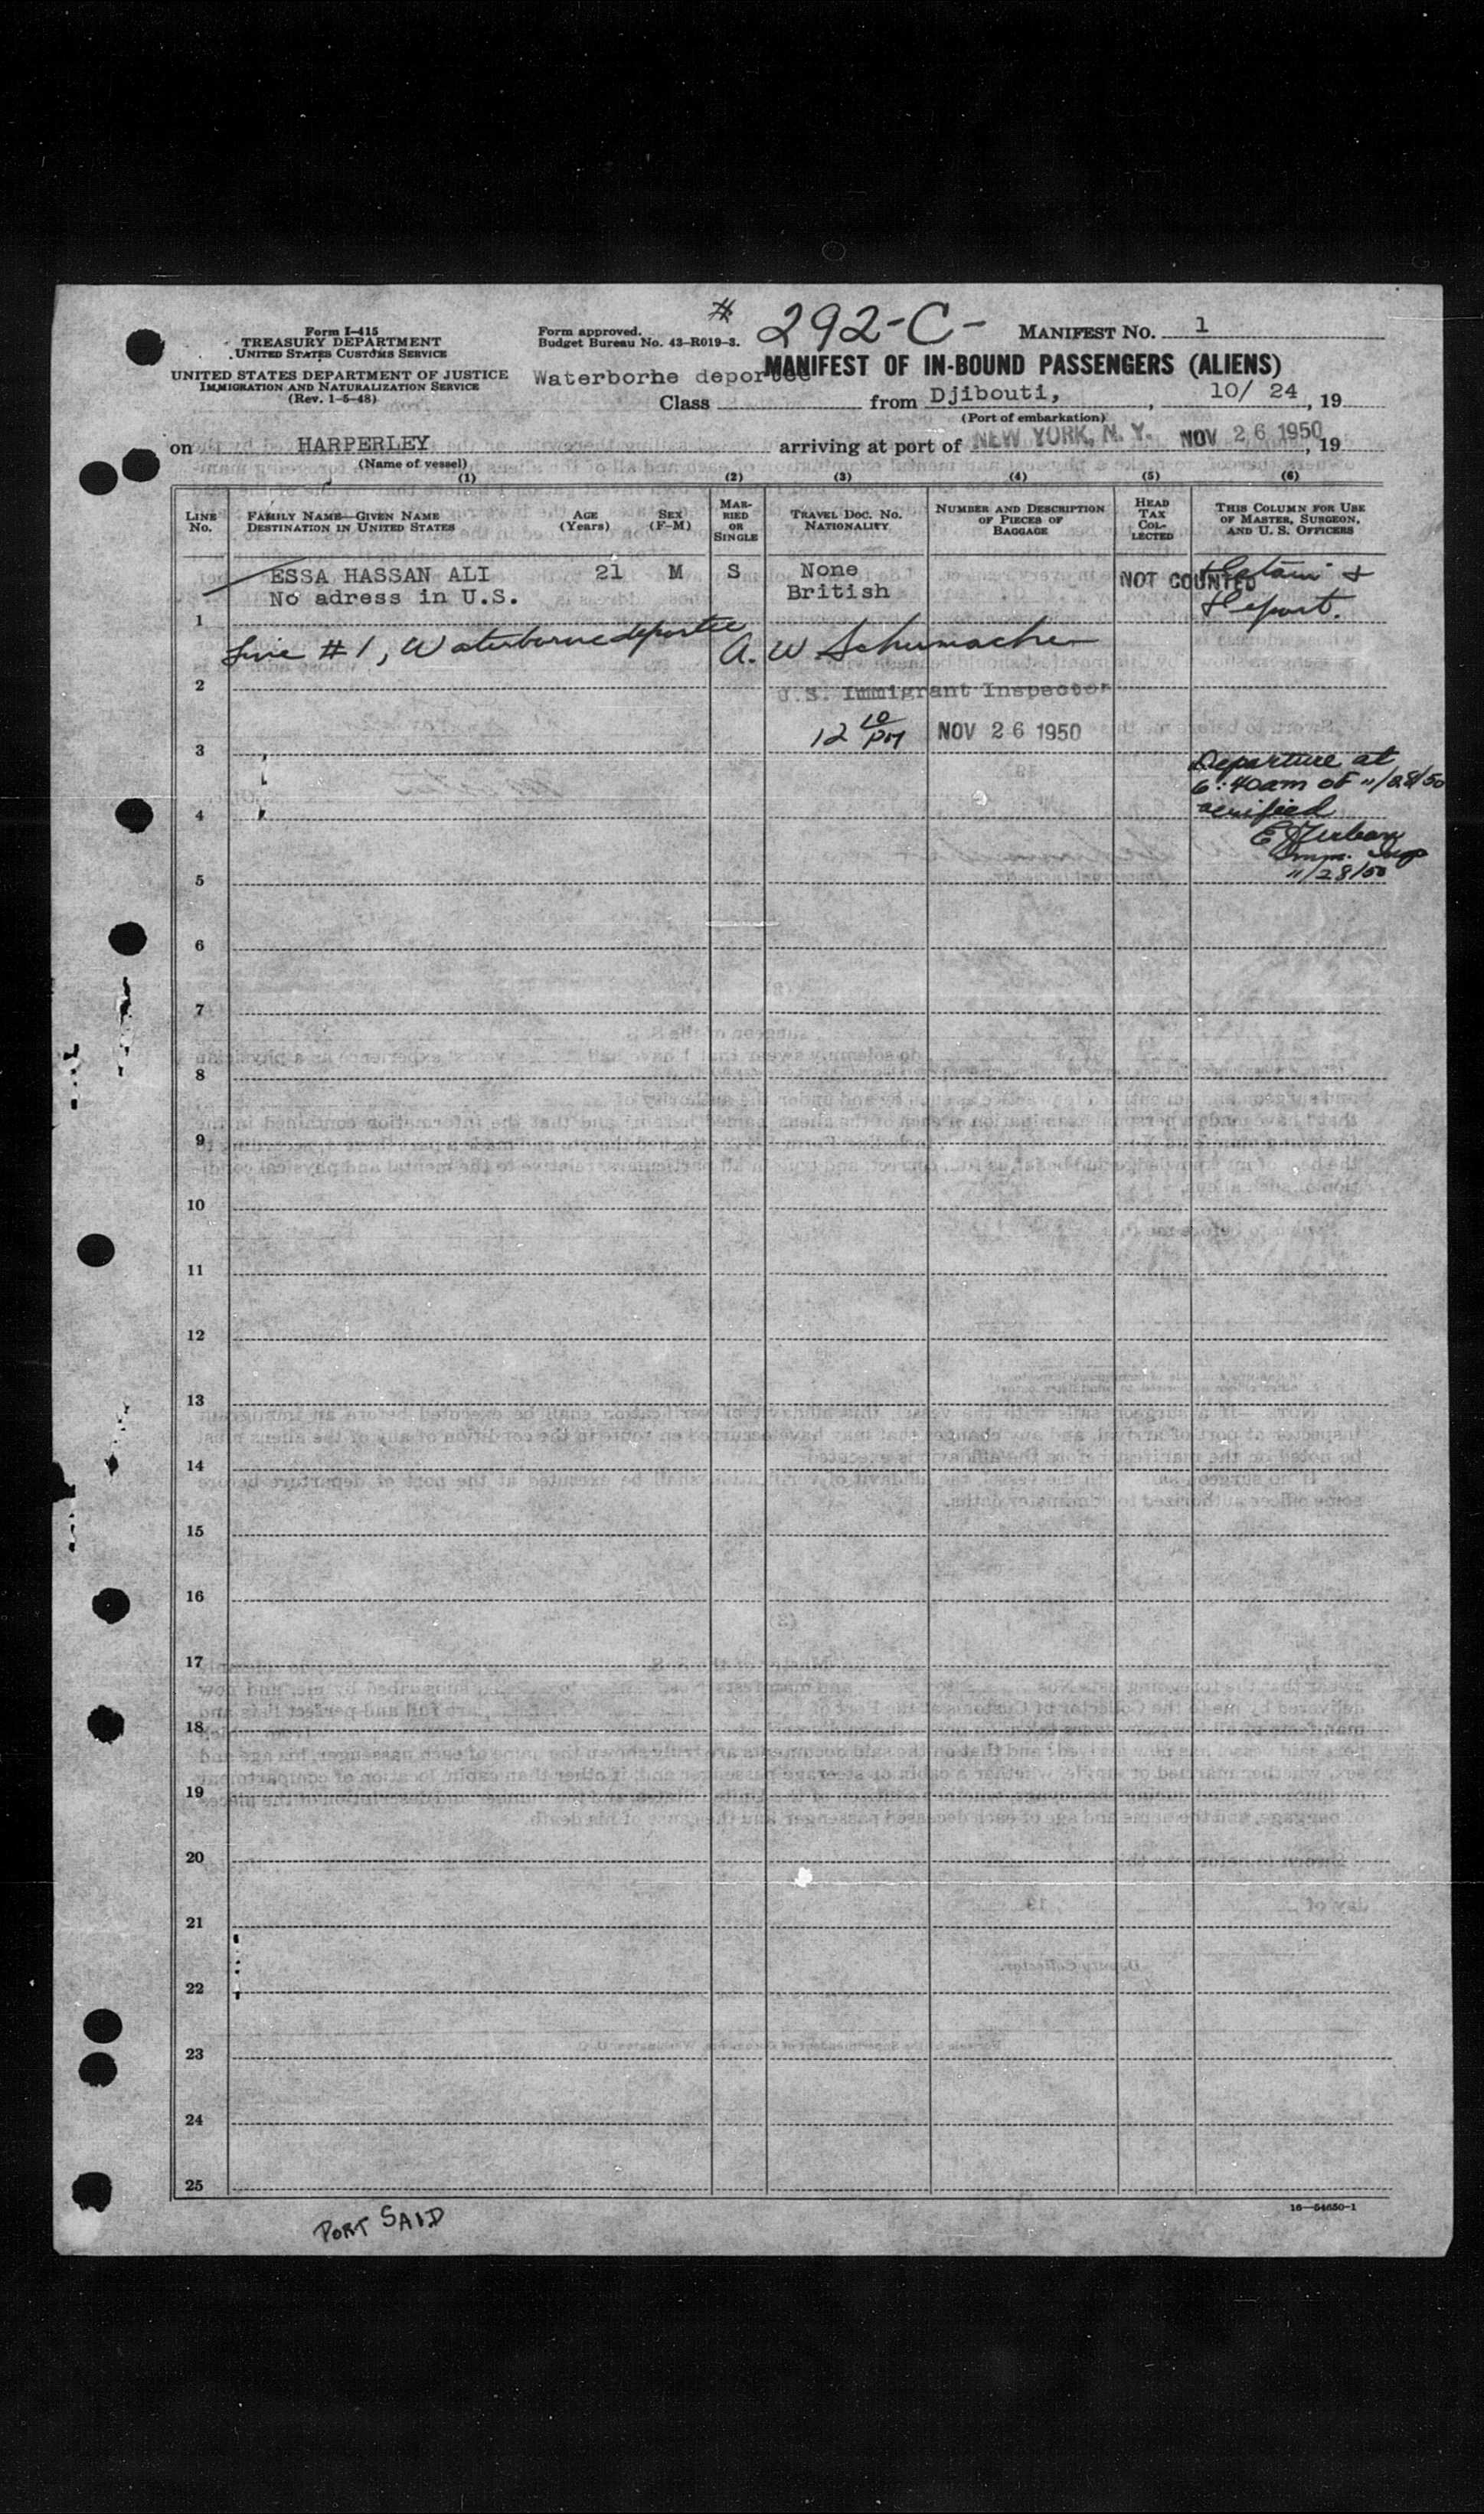 # 292-C-
Form I-415
TREASURY DEPARTMENT
UNITED STATES CUSTOMS SERVICE
UNITED STATES DEPARTMENT OF JUSTICE
IMMIGRATION AND NATURALIZATION SERVICE
(Rev. 1-5-48)
Form approved.
Budget Bureau No. 43-R019-3.
MANIFEST No. 1
MANIFEST OF IN-BOUND PASSENGERS (ALIENS)
Waterborne deportee
Class from Djibouti, , 10/ 24 , 19
(Port of embarkation)
on HARPERLEY arriving at port of NEW YORK, N. Y. NOV 26 1950 , 19
(Name of vessel)
(1) (2) (3) (4) (5) (6)
LINE No. FAMILY NAME—GIVEN NAME DESTINATION IN UNITED STATES AGE (Years) SEX (F-M) MARRIED OR SINGLE TRAVEL DOC. NO. NATIONALITY NUMBER AND DESCRIPTION OF PIECES OF BAGGAGE HEAD TAX COLLECTED THIS COLUMN FOR USE OF MASTER, SURGEON, AND U. S. OFFICERS
ESSA HASSAN ALI 21 M S None NOT COUNTED Detain &
No adress in U.S. British Deport.
1
Line #1, Waterborne deportee A. W Schumacher
2
U.S. Immigrant Inspector
12 10 PM NOV 26 1950
3
Departure at
6:40am of 11/28/50
4
verified
Imm. Insp
11/28/50
5
6
7
8
9
10
11
12
13
14
15
16
17
18
19
20
21
22
23
24
25
16—54650-1
PORT SAID